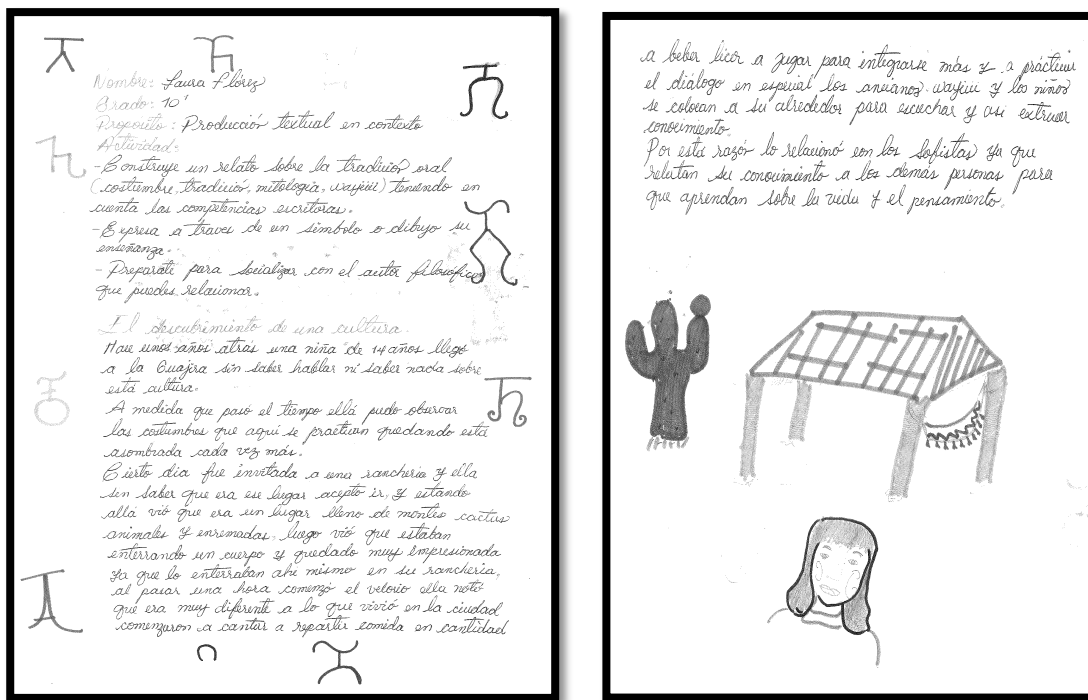 Nombre: Laura Flórez
Grado: 10°
Proposito: Producción textual en contexto
Actividad:
-Construye un relato sobre la tradición oral
(costumbre, tradición, mitologia, wayüü) teniendo en
cuenta las competencias escritoras.
-Expresa a traves de un símbolo o dibujo su
enseñanza.
- Preparate para socializar con el autor filosofico
que puedes relacionar.
El descubrimiento de una cultura.
Hace unos años atrás una niña de 14 años llegó
a la Guajira sin saber hablar ni saber nada sobre
está cultura.
A medida que pasó el tiempo ellá pudo observar
las costumbres que aqui se practican quedando está
asombrada cada vez más.
Cierto dia fue invitada a una rancheria y ella
sin saber que era ese lugar acepto ir, y estando
allá vió que era un lugar lleno de montes cactus
animales y enremadas, luego vió que estaban
enterrando un cuerpo y quedado muy impresionada
ya que lo enterraban ahi mismo en su rancheria,
al pasar una hora comenzó el velorio ella notó
que era muy diferente a lo que vivió en la ciudad
comenzaron a cantar a repartir comida en cantidad
a beber licor a jugar para integrarse más y a prácticar
el diálogo en especial los ancianos wayüü y los niños
se colocan a su alrededor para escuchar y asi extraer
conocimiento.
Por está razón lo relacionó con los Sofistas ya que
relatan su conocimiento a los demás personas para
que aprendan sobre la vida y el pensamiento.